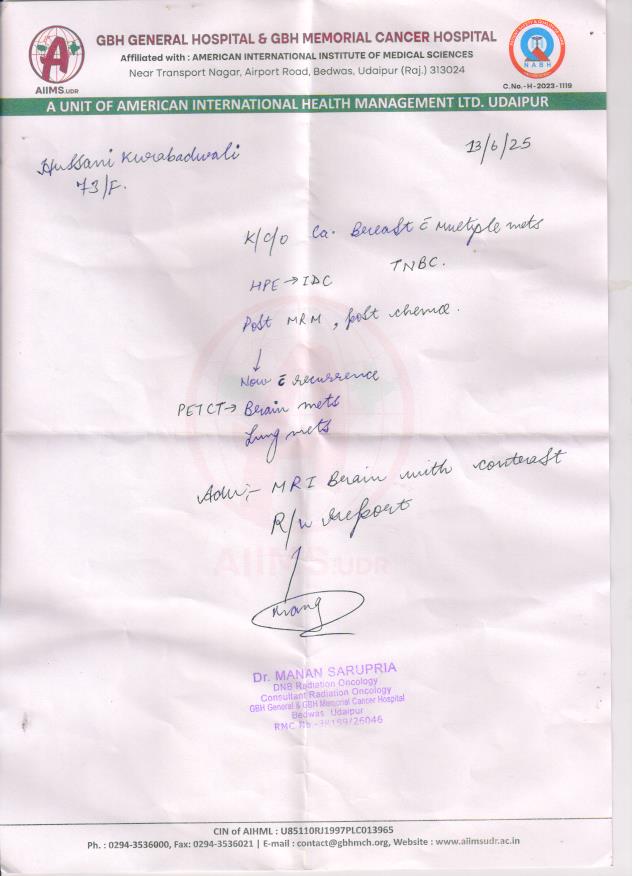 GBH GENERAL HOSPITAL & GBH MEMORIAL CANCER HOSPITAL
Affiliated with : AMERICAN INTERNATIONAL INSTITUTE OF MEDICAL SCIENCES
Near Transport Nagar, Airport Road, Bedwas, Udaipur (Raj.) 313024
AIIMS.UDR
NABH
C.No.-H-2023-1119
A UNIT OF AMERICAN INTERNATIONAL HEALTH MANAGEMENT LTD. UDAIPUR
Hussani Kurabadwali
13/6/25
73/F.
K/C/O Ca. Breast c̄ Multiple mets
TNBC.
HPE → IDC
Post MRM, post chemo.
↓
Now c̄ recurrence
PETCT → Brain mets
Lung mets
Adv:- MRI Brain with contrast
R/w report
AIIMS.UDR
Dr. MANAN SARUPRIA
DNB Radiation Oncology
Consultant Radiation Oncology
GBH General & GBH Memorial Cancer Hospital
Bedwas Udaipur
RMC No.-
CIN of AIHML : U85110RJ1997PLC013965
Ph. : 0294-3536000, Fax: 0294-3536021 | E-mail : contact@gbhmch.org, Website : www.aiimsudr.ac.in